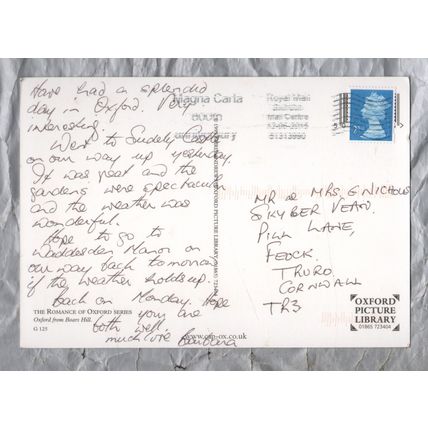 Have had a splendid
day in Oxford. Very
interesting.
Went to Sudely Castle
on our way up yesterday.
It was great and the
gardens were spectacular
and the weather was
wonderful.
Hope to go to
Waddesdon Manor on
our way back tomorrow
if the weather holds up.
Back on Monday. Hope
you are
both well.
much love Barbara
THE ROMANCE OF OXFORD SERIES
Oxford from Boars Hill.
G 125
www.cap-ox.co.uk
OXFORD PICTURE LIBRARY
Magna Carta
800th
Anniversary
Royal Mail
Mail Centre
2015
2nd
MR & MRS. G. NICHOLLS
SKYBER VEAN,
PILL LANE,
FEOCK.
TRURO.
CORNWALL
TR3
OXFORD
PICTURE
LIBRARY
01865 723404